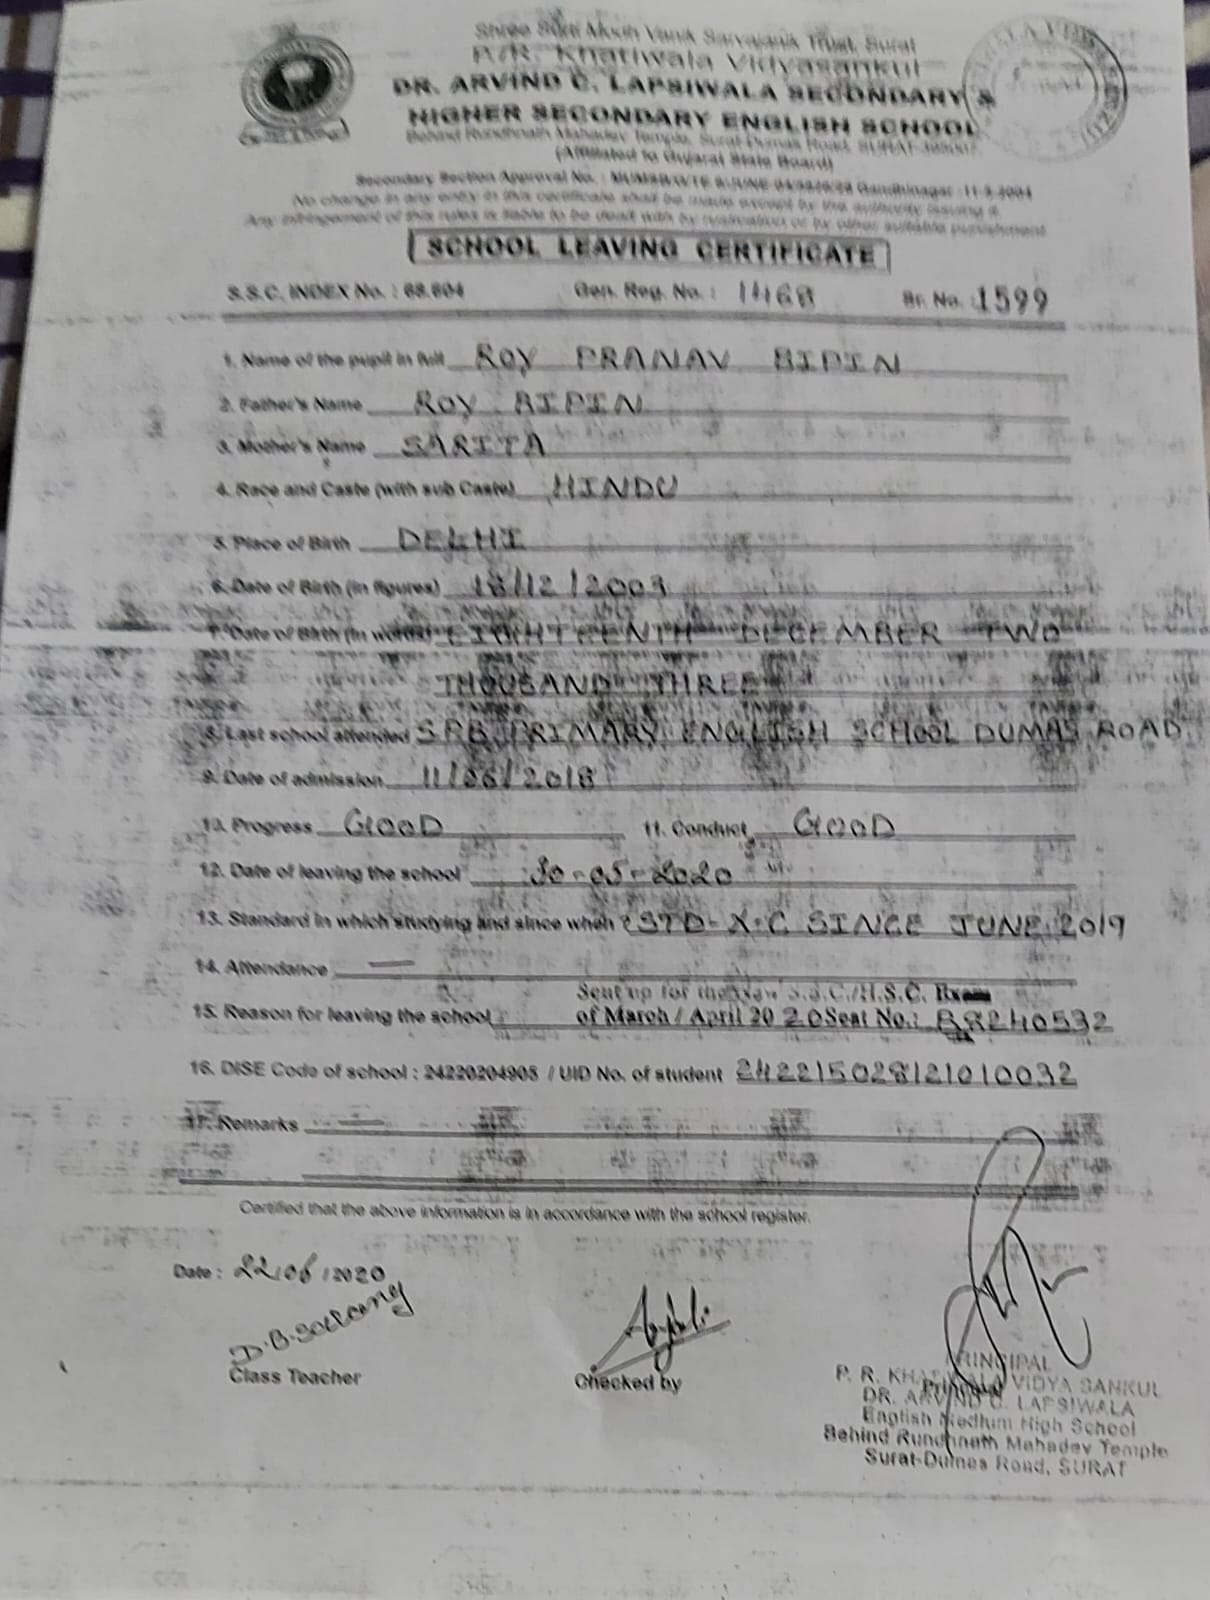 Shree Surti Modh Vanik Sarvajanik Trust, Surat
P. R. Khatiwala Vidyasankul
DR. ARVIND C. LAPSIWALA SECONDARY &
HIGHER SECONDARY ENGLISH SCHOOL
Behind Rundhnath Mahadev Temple, Surat-Dumas Road, SURAT-395007.
(Affiliated to Gujarat State Board)
Secondary Section Approval No. : Gandhinagar
No change in any entry in this certificate shall be made except by the authority issuing it
Any infringement of this rules is liable to be dealt with by rustication or by other suitable punishment
SCHOOL LEAVING CERTIFICATE
S.S.C. INDEX No. : 68.604 Gen. Reg. No. : 1468 Sr. No. : 1599
1. Name of the pupil in full ROY PRANAV BIPIN
2. Father's Name ROY BIPIN
3. Mother's Name SARITA
4. Race and Caste (with sub Caste) HINDU
5. Place of Birth DELHI
6. Date of Birth (in figures) 18/12/2003
7. Date of Birth (in words) EIGHTEENTH DECEMBER TWO
THOUSAND THREE
8. Last school attended PRIMARY ENGLISH SCHOOL DUMAS ROAD
9. Date of admission 11/06/2018
10. Progress GOOD 11. Conduct GOOD
12. Date of leaving the school 30-05-2020
13. Standard in which studying and since when STD-X-C SINCE JUNE 2019
14. Attendance —
Sent up for the New S.S.C./H.S.C. Exam
15. Reason for leaving the school of March / April 20 20 Seat No.: B8240532
16. DISE Code of school : 24220204905 / UID No. of student 242215028121010032
17. Remarks —
Certified that the above information is in accordance with the school register.
Date : 22/06/2020
Class Teacher Checked by Principal
PRINCIPAL
P. R. KHATIWALA VIDYA SANKUL
DR. ARVIND C. LAPSIWALA
English Medium High School
Behind Rundhnath Mahadev Temple
Surat-Dumas Road, SURAT